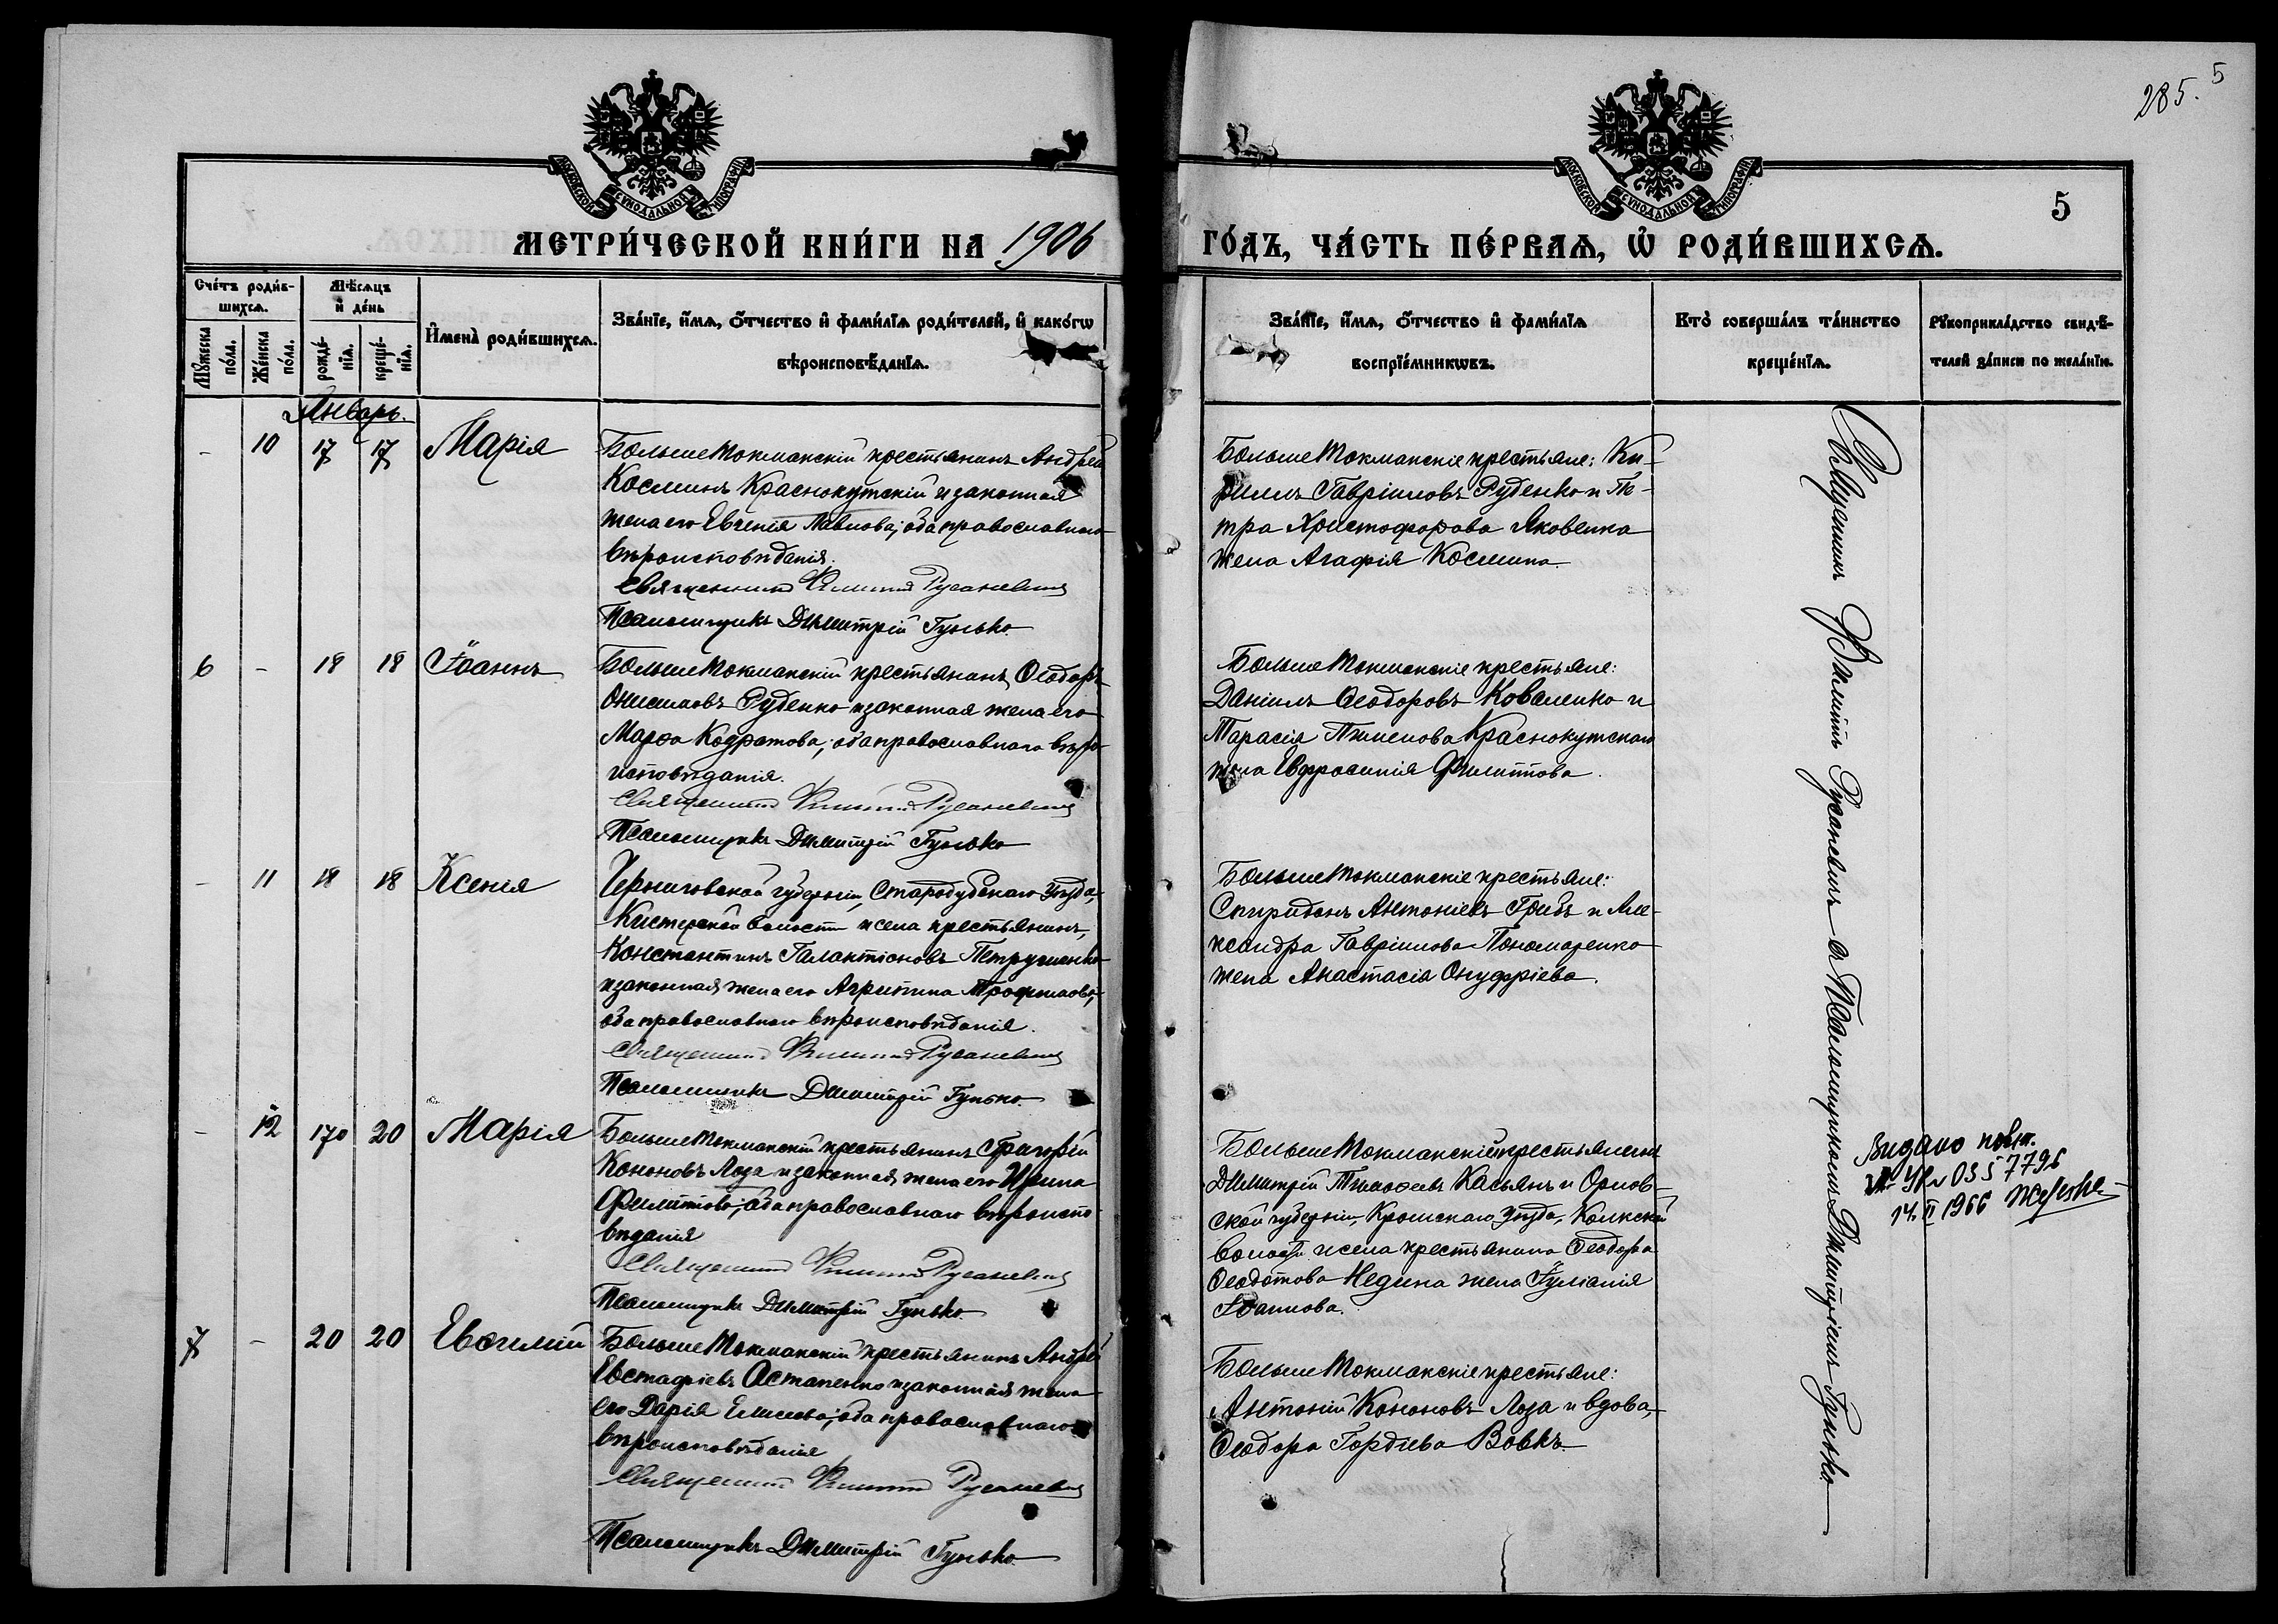 285. 5
МОСКОВСКОЙ СѴНОДАЛЬНОЙ ТИПОГРАФІИ
МОСКОВСКОЙ СѴНОДАЛЬНОЙ ТИПОГРАФІИ
5
МЕТРИ́ЧЕСКОЙ КНИ́ГИ НА 1906
ГО́ДЪ, ЧА́СТЬ ПЕ́РВАѦ, Ѡ҆ РОДИ́ВШИХСѦ.
Сче́тъ роди́в-
шихсѧ.
Мꙋ́жеска по́ла.
Же́нска по́ла.
Мѣ́сѧцъ
и҆ де́нь
рожде́-
нїѧ.
креще́-
нїѧ.
И҆мена̀ роди́вшихсѧ.
Зва́нїе, и҆́мѧ, ѻ҆́тчество и҆ фами́лїѧ роди́телей, и҆ како́гѡ
вѣроисповѣ́данїѧ.
Зва́нїе, и҆́мѧ, ѻ҆́тчество и҆ фами́лїѧ
воспрїе́мникѡвъ.
Кто̀ соверша́лъ та́инство
креще́нїѧ.
Рꙋкоприкла́дство свидѣ́-
телей за́писи по жела́нїю.
Январь.
- 10 17 17 Марія
БольшеТокмакскій крестьянинъ Андрей
Косминъ Краснокутскій и законная
жена его Евгенія Павлова; оба православнаго
вѣроисповѣданія.
Священникъ Филиппъ Русаневичъ
Псаломщикъ Димитрій Гунько
БольшеТокмакскіе крестьяне: Ки-
риллъ Гавріиловъ Руденко и Пе-
тра Христофорова Яковенка
жена Агафія Космина.
6 - 18 18 Іоаннъ
БольшеТокмакскій крестьянинъ Ѳеодоръ
Онисимовъ Руденко и законная жена его
Марѳа Кодратова; оба православнаго вѣро-
исповѣданія.
Священникъ Филиппъ Русаневичъ
Псаломщикъ Димитрій Гунько
БольшеТокмакскіе крестьяне:
Даніилъ Ѳеодоровъ Коваленко и
Тарасія Пименова Краснокутскаго
жена Евфросинія Филиппова.
- 11 18 18 Ксенія
Черниговской губерніи, Стародубскаго Уѣзда,
Кистерской волости и села крестьянинъ,
Константинъ Галактіоновъ Петрушенко
и законная жена его Агрипина Трофимова,
оба православнаго вѣроисповѣданія.
Священникъ Филиппъ Русаневичъ
Псаломщикъ Димитрій Гунько.
БольшеТокмакскіе крестьяне:
Спиридонъ Антоніевъ Грибъ и Але-
ксандра Гавріилова Пономаренко
жена Анастасія Онуфріева.
- 12 170 20 Марія
БольшеТокмакскій крестьянинъ Григорій
Кононовъ Лоза и законная жена его Ирина
Филиппова, оба православнаго вѣроиспо-
вѣданія
Священникъ Филиппъ Русаневичъ
Псаломщикъ Димитрій Гунько.
БольшеТокмакскій крестьянинъ
Димитрій Тимоѳеевъ Касьянъ и Орлов-
ской губерніи, Кромскаго Уѣзда,
волости и села крестьянина Ѳеодора
Ѳеодотова Недина жена Іуліанія
Іоаннова.
Видано повт.
0357796
14. II 1966
7 - 20 20 Евѳимій
БольшеТокмакскій крестьянинъ Андрей
Евстафіевъ Остапенко и законная жена
его Дарія Елисеева; оба православнаго
вѣроисповѣданія
Священникъ Филиппъ Русаневичъ
Псаломщикъ Димитрій Гунько.
БольшеТокмакскіе крестьяне:
Антоній Кононовъ Лоза и вдова,
Ѳеодора Гордіева Вовкъ.
Священникъ Филиппъ Русаневичъ съ Псаломщикомъ Димитріемъ Гунько.